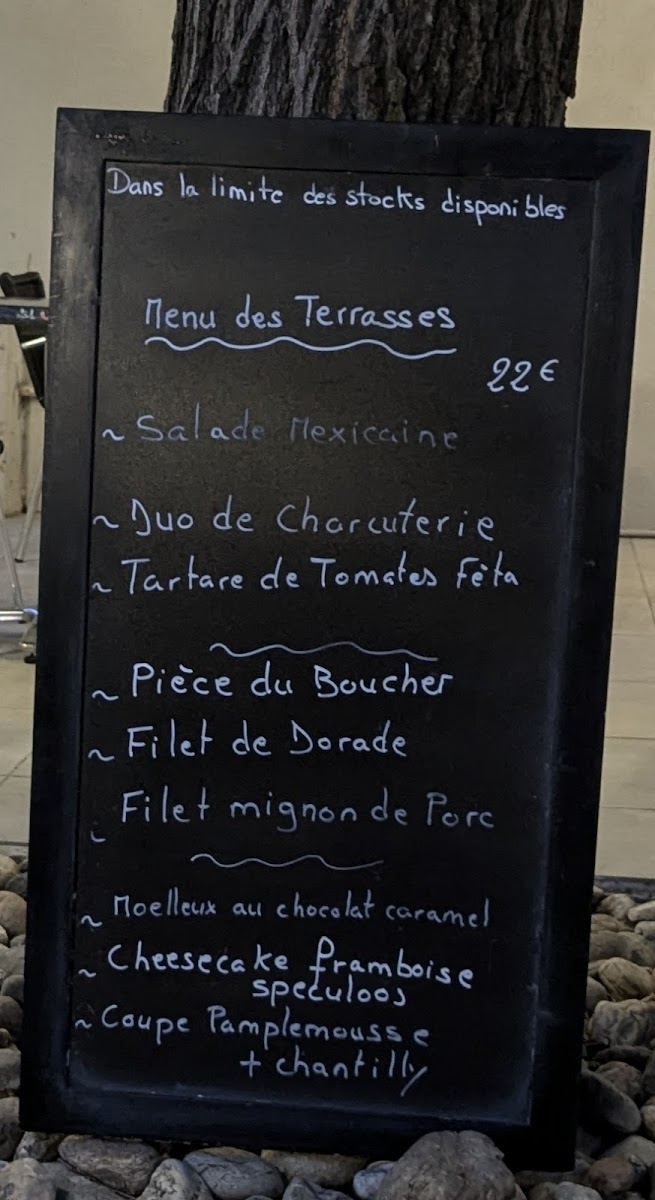 Dans la limite des stocks disponibles
Menu des Terrasses
22€
~ Salade Mexicaine
~ Duo de Charcuterie
~ Tartare de Tomates Fèta
~ Pièce du Boucher
~ Filet de Dorade
Filet mignon de Porc
~ Moelleux au chocolat caramel
~ Cheesecake framboise
speculoos
~ Coupe Pamplemousse
+ chantilly